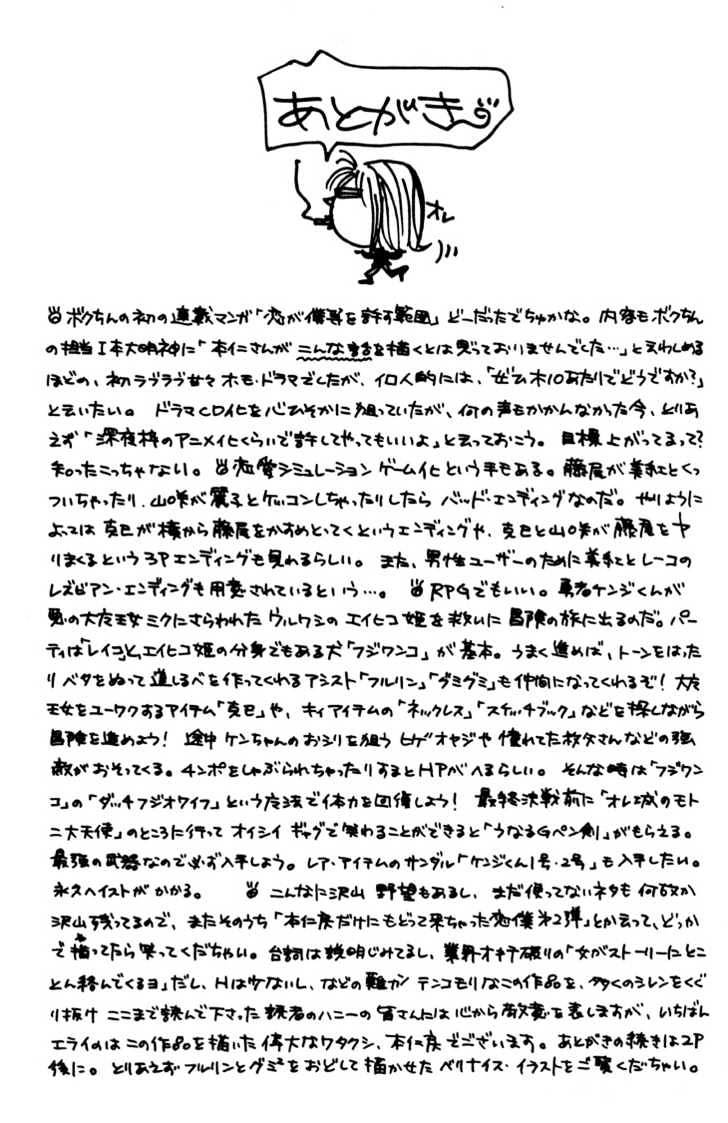 あとがき
オレ
ボクちんの初の連載マンガ「恋が僕等を許す範囲」どーだったでちゅかな。内容もボクちん
の担当I本大明神に「本仁さんがこんなまるを描くとは思っておりませんでした…」と云わしめる
ほどの、初ラヴラヴ甘々ホモ・ドラマでしたが、イロ人的には、「ぜひ木10あたりでどうですか?」
と云いたい。ドラマCD化を心ひそかに狙っていたが、何の声もかかんなかった今、とりあ
えず「深夜枠のアニメ化くらいで許してやってもいいよ」と云っておこう。目標上がってるって?
知ったこっちゃない。恋愛シミュレーションゲーム化という手もある。藤尾が美紅とくっ
ついちゃったり、山咲が麗子とケッコンしちゃったりしたらバッド・エンディングなのだ。やりように
よっては克巳が横から藤尾をかすめとってくというエンディングや、克巳と山咲が藤尾をヤ
りまくるという3Pエンディングも見れるらしい。また、男性ユーザーのために美紅とレーコの
レズビアン・エンディングも用意されているという…。RPGでもいい。勇者ケンジくんが
悪の大友王女ミクにさらわれたウルワシのエイヒコ姫を救いに冒険の旅に出るのだ。パー
ティは「レイコ」と、エイヒコ姫の分身でもある犬「フジワンコ」が基本。うまく進めば、トーンをはった
りベタをぬって道しるべを作ってくれるアシスト「フルリン」「グミグミ」も仲間になってくれるぞ!大友
王女をユーワクするアイテム「克巳」や、キィアイテムの「ネックレス」「スケッチブック」などを探しながら
冒険を進めよう!途中ケンちゃんのおシリを狙うヒゲオヤジや憧れてた枚夕さんなどの強
敵がおそってくる。チンポをしゃぶられちゃったりするとHPがへるらしい。そんな時は「フジワン
コ」の「ダッチフジオワイフ」という方法で体力を回復しよう!最終決戦前に「オレ城のモト
ニ大天使」のところに行ってオイシイギャグで笑わることができると「うなるGペン剣」がもらえる。
最強の武器なので必ず入手しよう。レア・アイテムのサンダル「ケンジくん1号・2号」も入手したい。
永久ヘイストがかかる。こんなに沢山野望もあるし、まだ使ってないネタも何故か
沢山残ってるので、またそのうち「本仁戻だけにもどって来ちゃった恋僕第2弾」とか云って、どっか
で描ってたら笑ってくだちゃい。台詞は説明じみてるし、業界オキテ破りの「女がストーリーにとこ
とん絡んでくるヨ」だし、Hは少ないし、などの難がテンコモリなこの作品を、多くのシレンをくぐ
り抜けここまで読んで下さった読者のハニーの皆さんには心から敬意を表しますが、いちばん
エライのはこの作品を描いた偉大なワタクシ、本仁戻でございます。あとがきの続きは2P
後に。とりあえずフルリンとグミ²をおどして描かせたベリナイス・イラストをご覧くだちゃい。